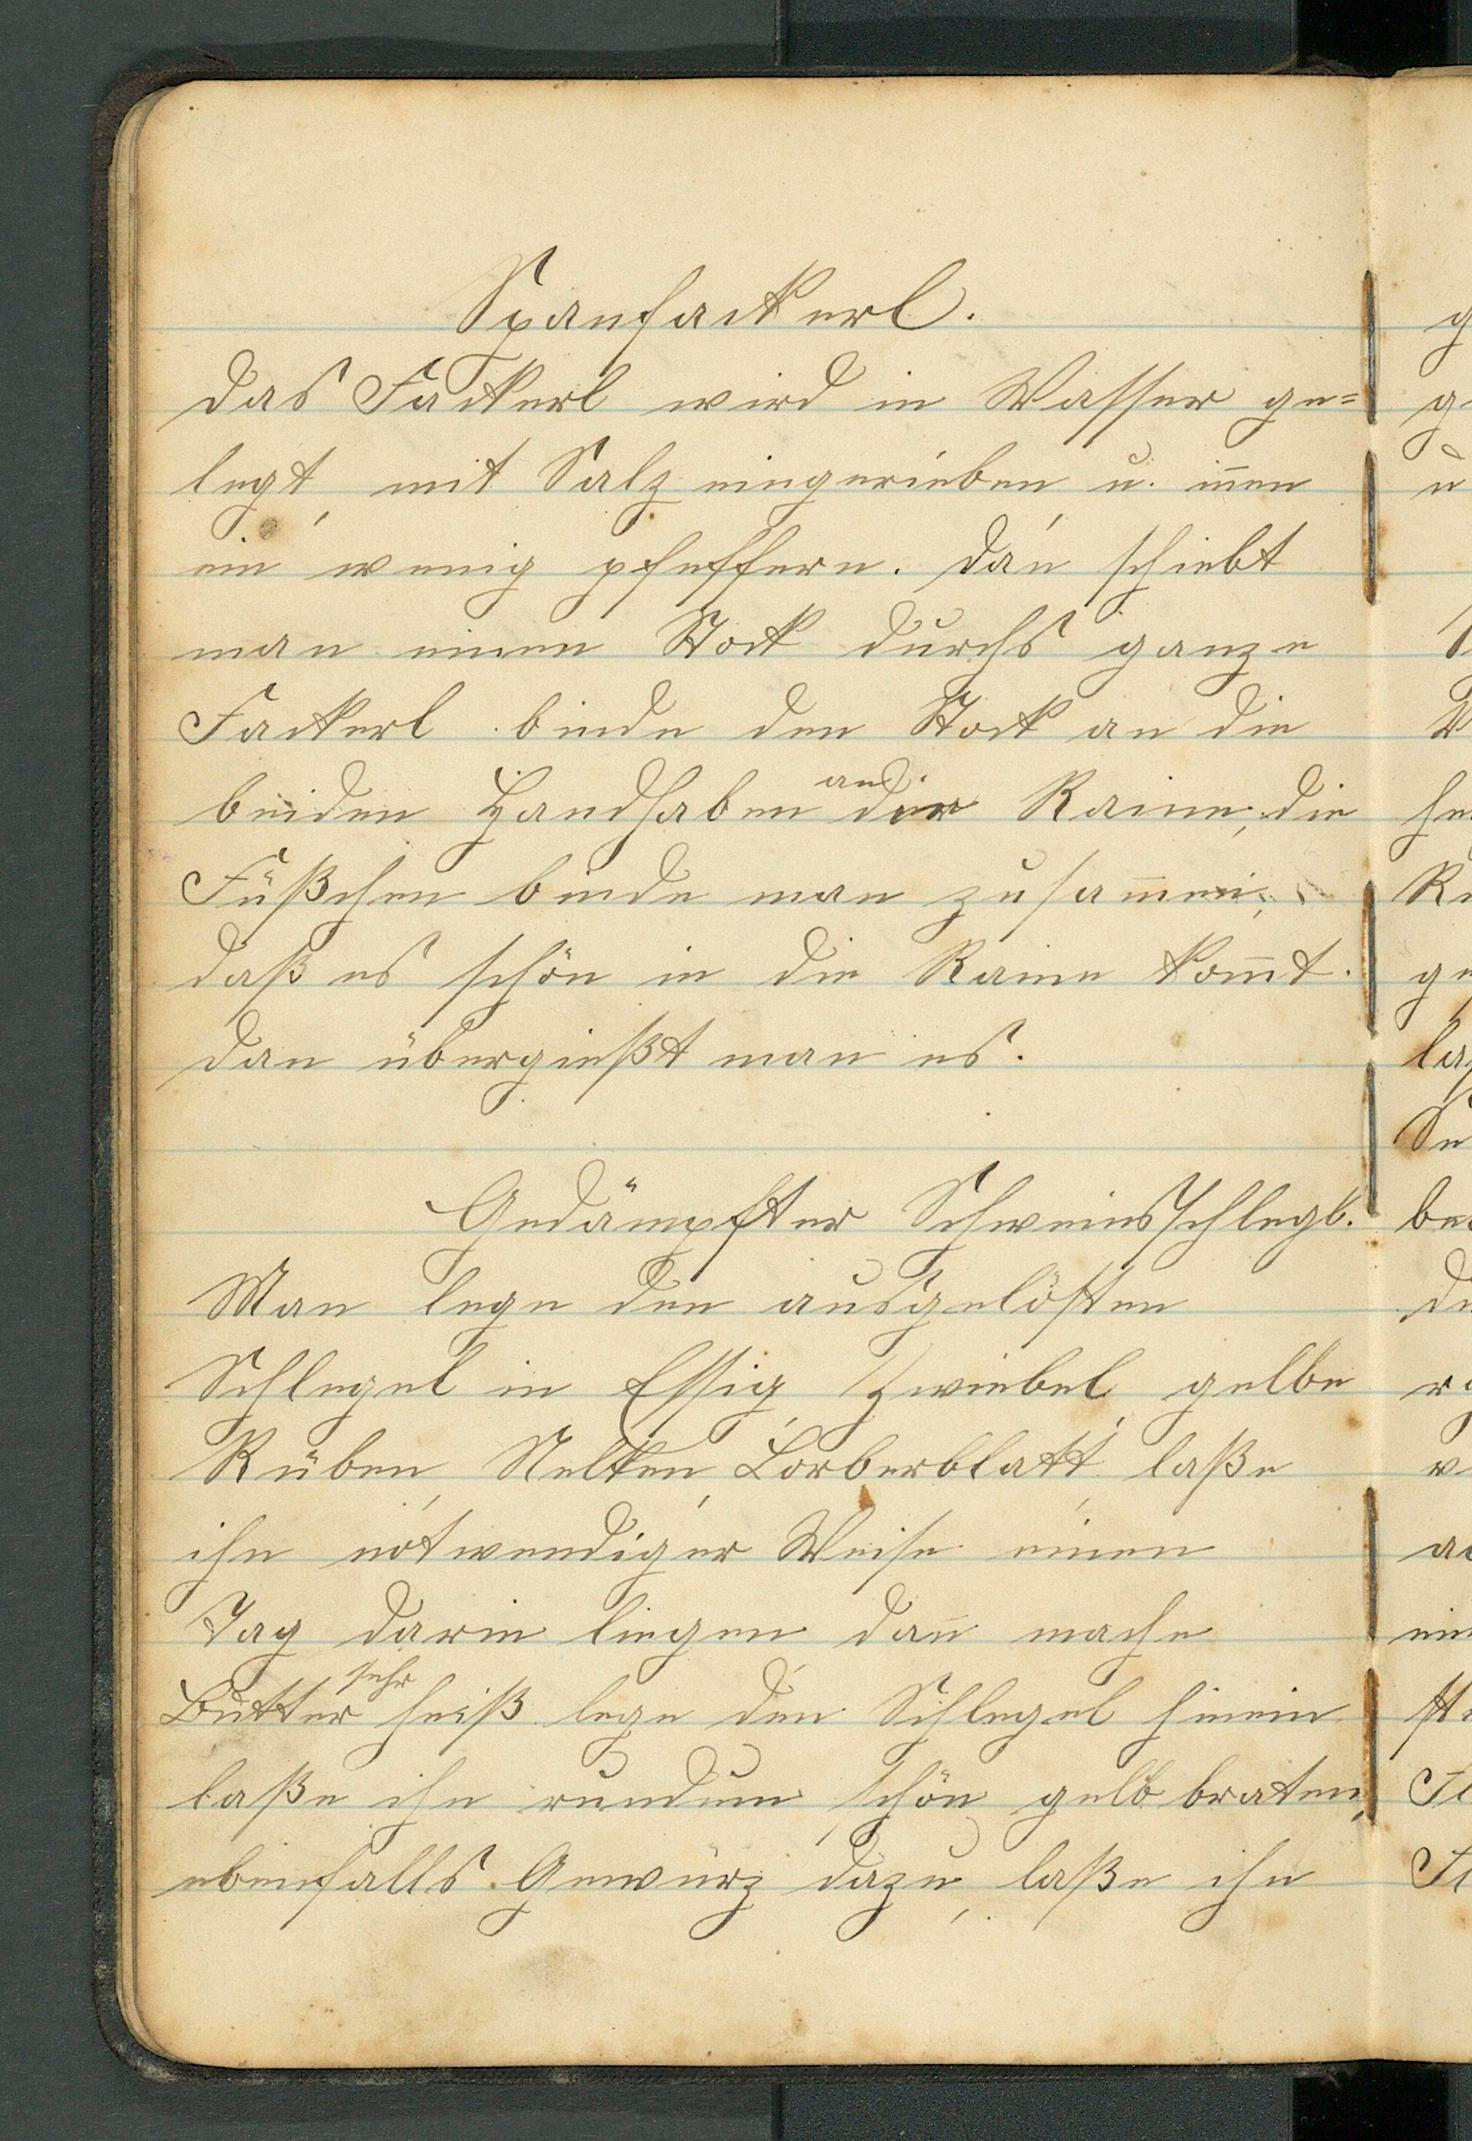 Spanfackerl.
Das Fackerl wird in Wasser ge=
legt, mit Salz eingerieben u. iñen
ein wenig pfeffern. Dan̄ schiebt
man einen Stock durchs ganze
Fackerl binde den Stock an die
beiden Handhaben an der Raine, die
Füßchen binde man zusam̄en,
daß es schön in die Raine kom̄t.
Dan übergießt man es.
Gedämpfter Schweinsschlegl.
Man lege den ausgelösten
Schlegel in Essig, Zwiebel, gelbe
Rüben, Nelken, Lorberblatt, laße
ihn notwendiger Weise einen
Tag darin liegen dan̄ mache
Butter sehr heiß lege den Schlegel hinein
laße ihn rundum schön gelb braten,
ebenfalls Gewürz dazu, laße ihn